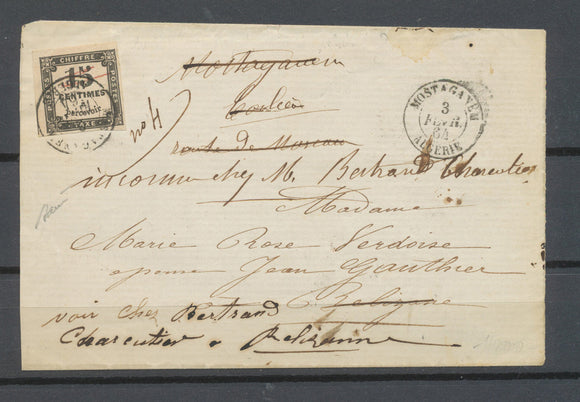 CHIFFRE
15
CENTIMES
à
Percevoir
TAXE
POSTES
MOSTAGANEM
3
FEVR.
64
ALGERIE
Mostaganem
route de
no 4
inconnu chez M. Bertrand Charentier
Madame
Marie Rose Verdoise
epouse Jean Gauthier
Relizane
voir chez Bertrand
Charentier a Relizanne